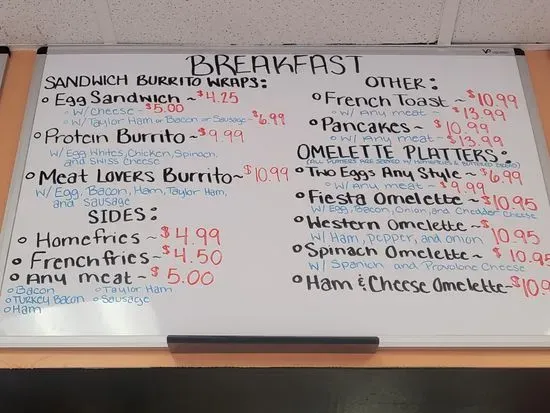 BREAKFAST
SANDWICH BURRITO WRAPS:
Egg Sandwich ~ $4.25
w/ Cheese ~ $5.00
w/ Taylor Ham or Bacon or Sausage ~ $6.99
Protein Burrito ~ $9.99
w/ Egg Whites, Chicken, Spinach,
and Swiss Cheese
Meat LOVERS Burrito ~ $10.99
w/ Egg, Bacon, Ham, Taylor Ham,
and Sausage
SIDES:
Homefries ~ $4.99
Frenchfries ~ $4.50
Any meat ~ $5.00
Bacon
Taylor Ham
TURKEY Bacon
Sausage
Ham
OTHER:
French Toast ~ $10.99
w/ Any meat ~ $13.99
Pancakes ~ $10.99
w/ Any meat ~ $13.99
OMELETTE PLATTERS:
(ALL PLATTERS ARE SERVED W/ HOMEFRIES & BUTTERED BREAD)
Two Eggs Any Style ~ $6.99
w/ Any meat ~ $9.99
Fiesta Omelette ~ $10.95
w/ Egg, Bacon, Onion, and Cheddar Cheese
Western Omelette ~ $10.95
w/ Ham, pepper, and onion
Spinach Omelette ~ $10.95
w/ Spanich and Provolone Cheese
Ham & Cheese Omelette ~ $10.9